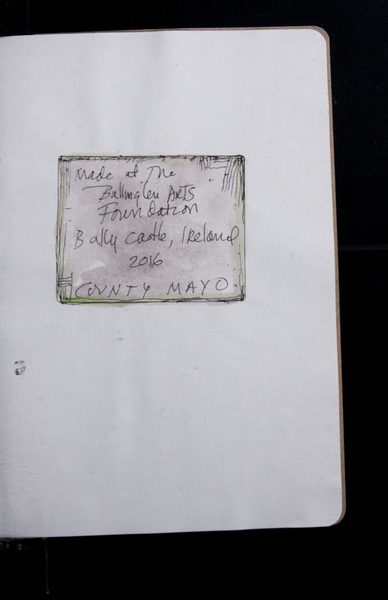 Made at The
Ballinglen ARTS
Foundation
Bally Castle, Ireland
2016
COUNTY MAYO